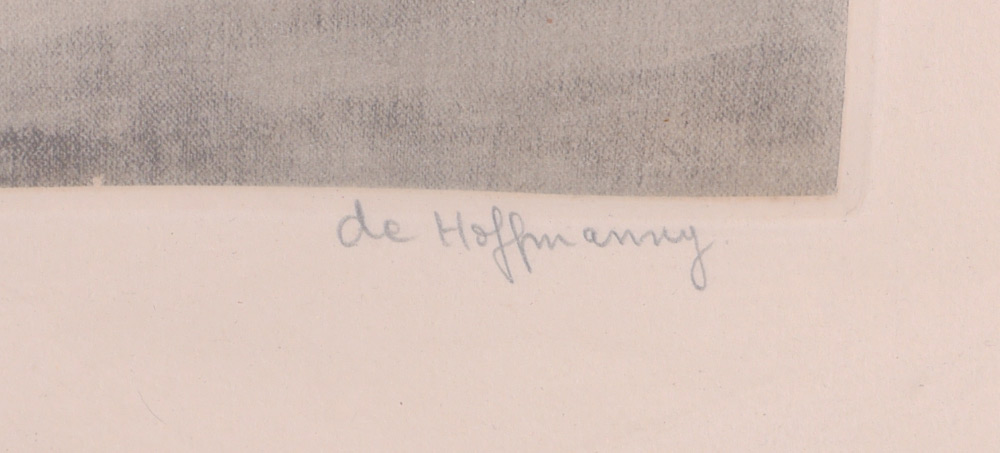 de Hoffmanny